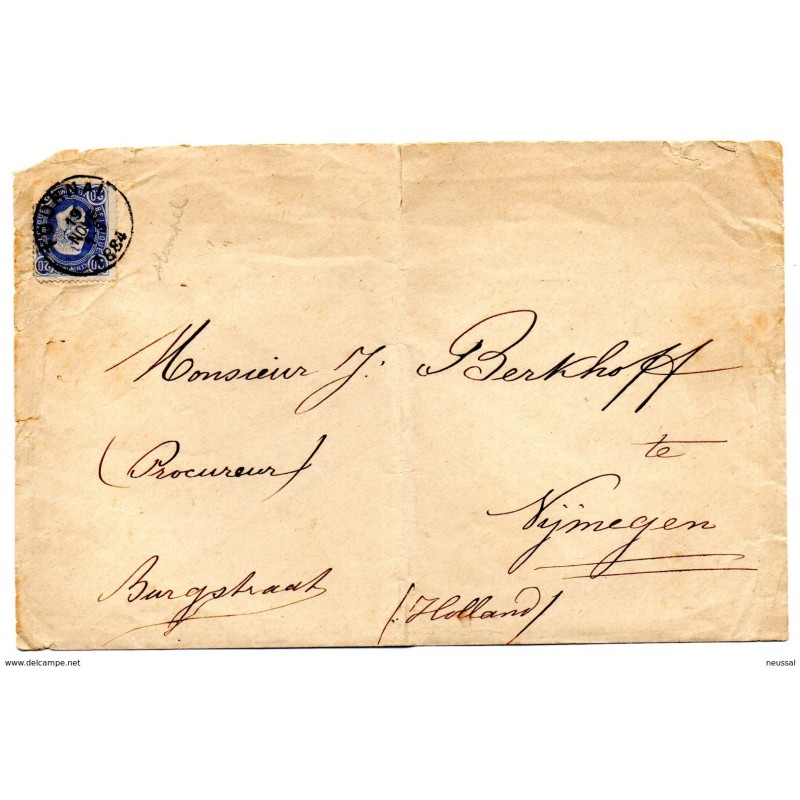 1884
Monsieur J. Berkhoff
(Procureur)
te
Nijmegen
Burgstraat
(Holland)
www.delcampe.net
neussal